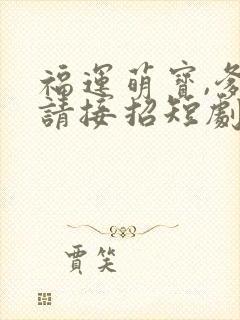 福運萌寶,爹
請接招短劇
賈笑